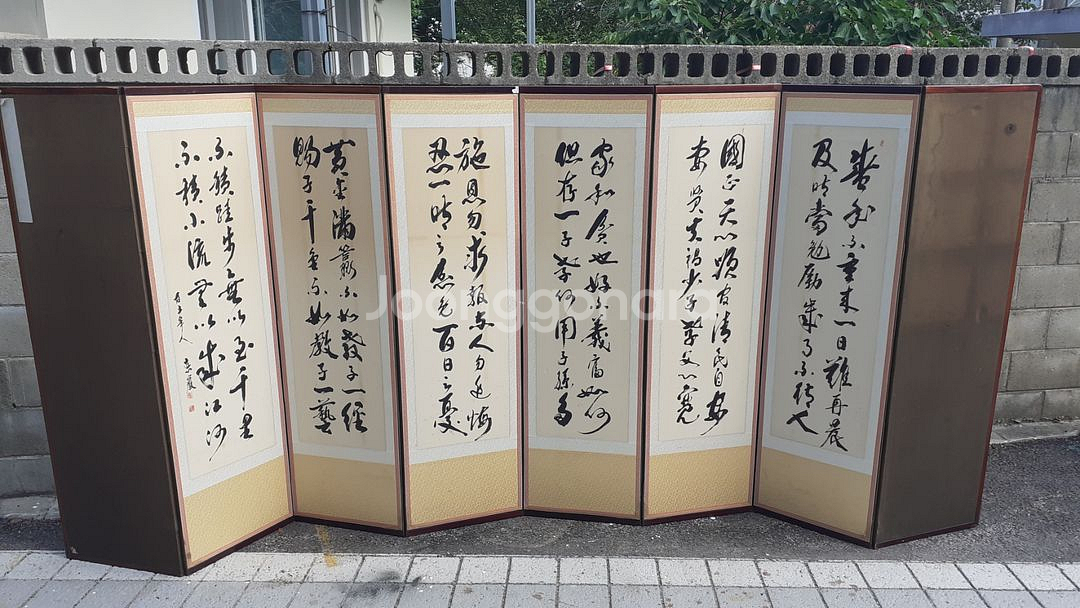 盛年不重來一日難再晨
及時當勉勵歲月不待人
國正天心順官清民自安
妻賢夫禍少子孝父心寬
家和貧也好不義富如何
但存一子孝何用子孫多
施恩勿求報與人勿追悔
忍一時之忿免百日之憂
黃金滿籯不如敎子一經
賜子千金不如敎子一藝
不積蹞步無以至千里
不積小流無以成江河
Joonggonara